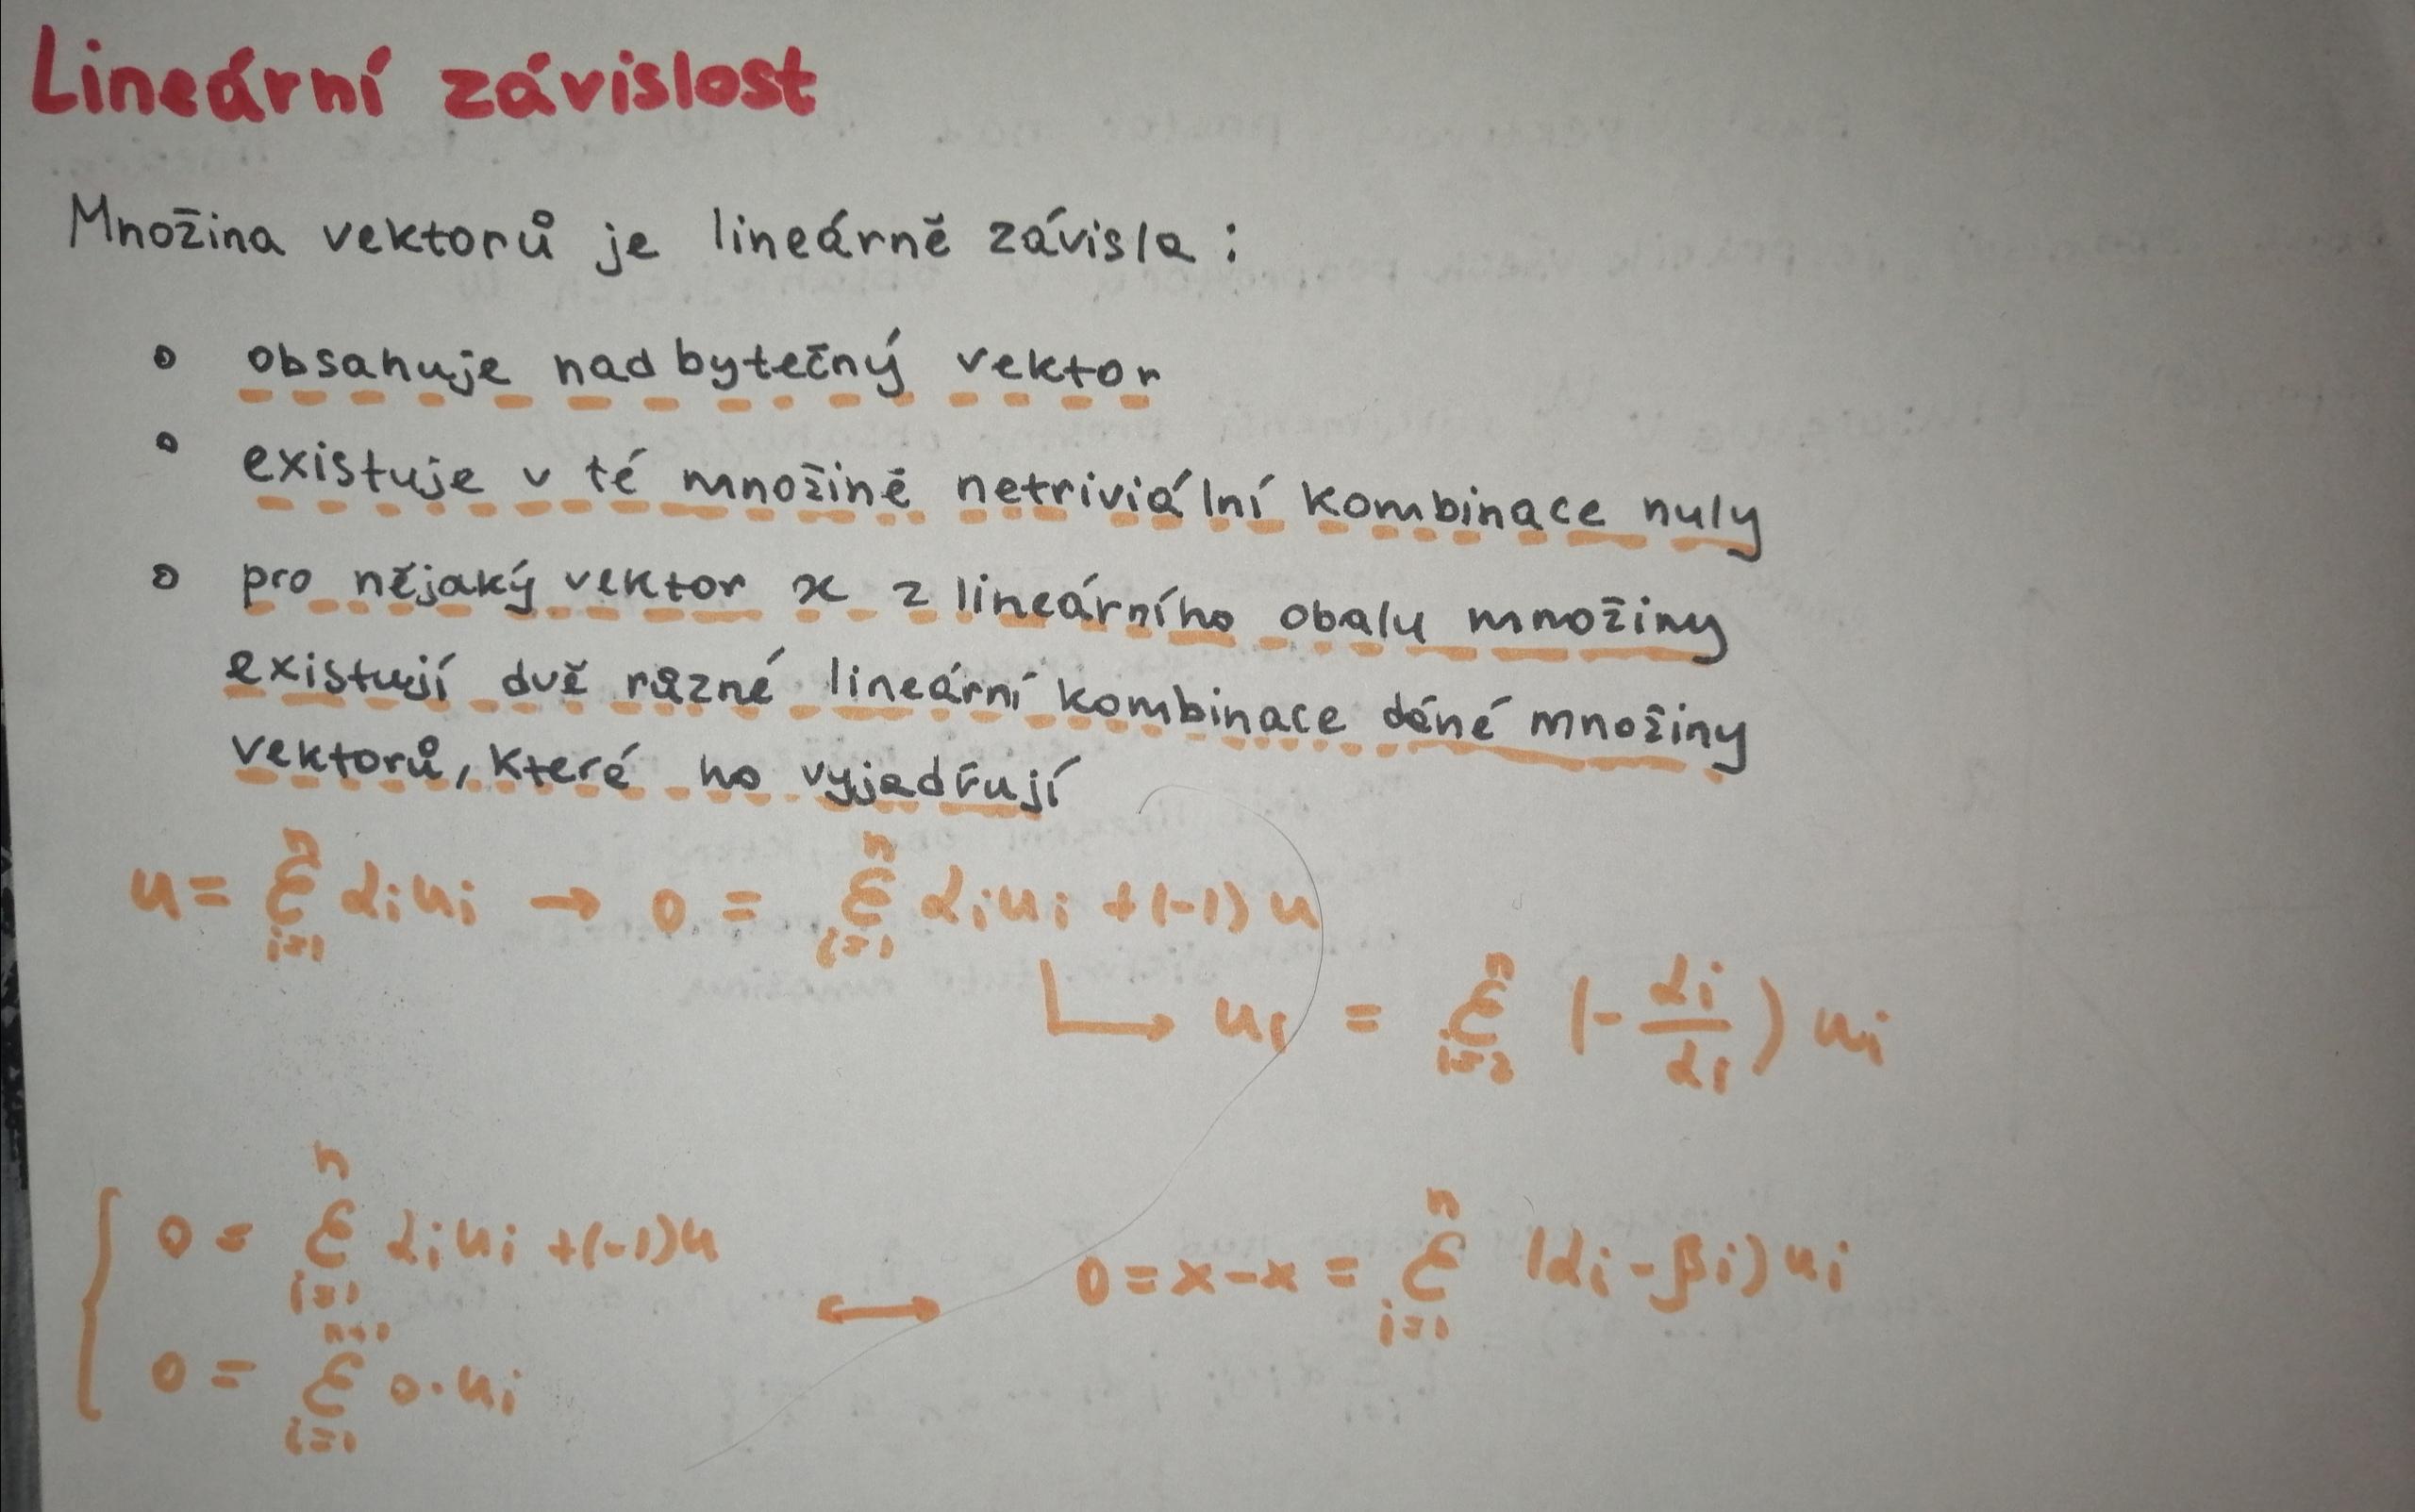 Lineární závislost
Množina vektorů je lineárně závisla:
• obsahuje nadbytečný vektor
• existuje v té množině netriviální kombinace nuly
• pro nějaký vektor x z lineárního obalu množiny
existují dvě různé lineární kombinace dáné množiny
vektorů, které ho vyjadřují
u = ∑ᵢ₌₁ⁿ αᵢuᵢ → 0 = ∑ᵢ₌₁ⁿ αᵢuᵢ + (-1)u
↳ u₁ = ∑ᵢ₌₂ⁿ (-αᵢ/α₁) uᵢ
{ 0 = ∑ᵢ₌₁ⁿ αᵢuᵢ + (-1)u
0 = ∑ᵢ₌₁ⁿ⁺¹ 0·uᵢ ↔ 0 = x - x = ∑ᵢ₌₁ⁿ (αᵢ - βᵢ) uᵢ